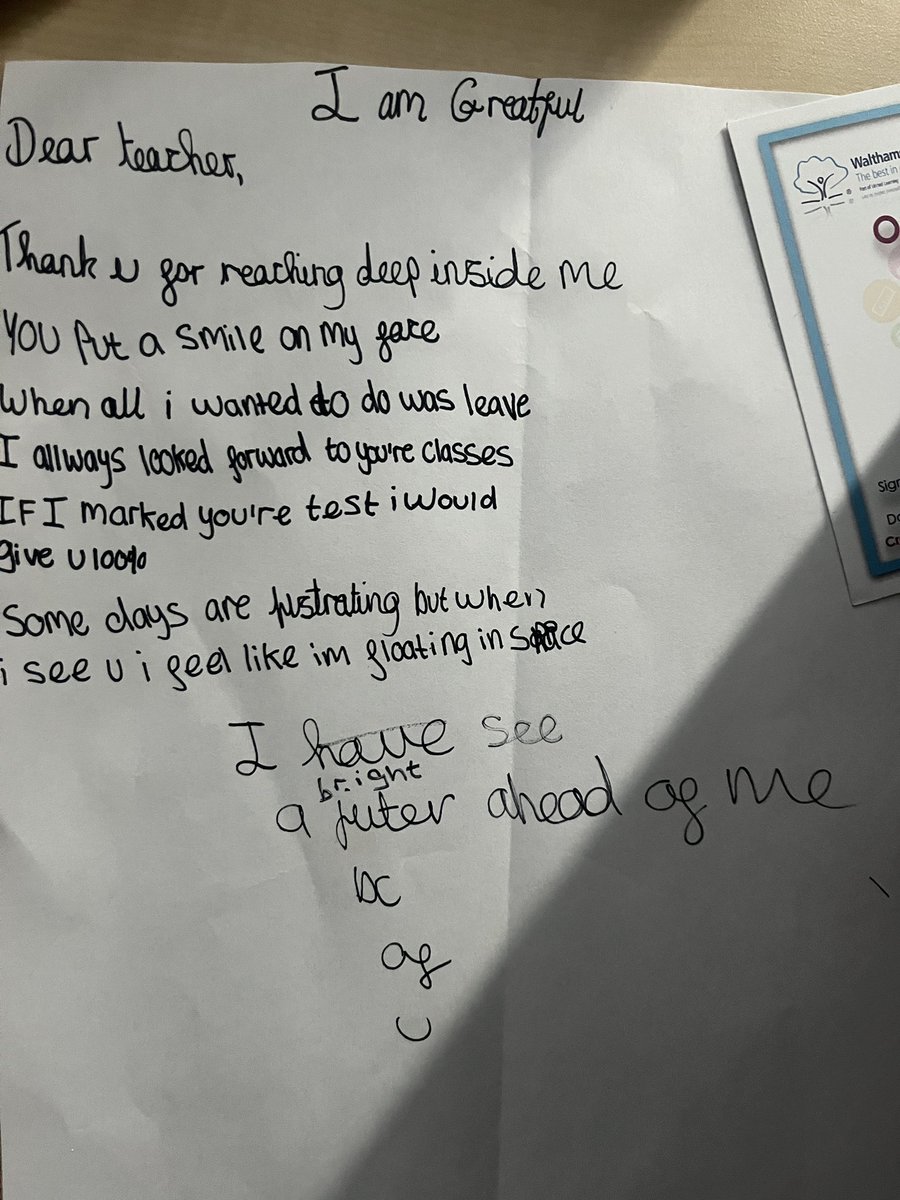 I am Greatful
Dear teacher,
Thank u for reaching deep inside me
YOU Put a smile on my face
When all i wanted to do was leave
I allways looked forward to you're classes
IF I marked you're test i would
give u 100%
Some days are fustrating but when
i see u i feel like im floating in space
I have see
bright
a futer ahead of me
bc
of
U
Waltham
The best in
Part of United Learning
O
Sign
Da
Cr